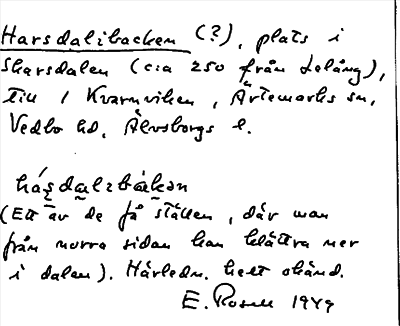 Harsdalsbacken (?), plats i
Skarsdalen (c:a 250 från Lelång),
till 1 Kvarnviken, Ärtemarks sn,
Vedbo hd, Älvsborgs l.
(Ett av de få ställen, där man
från norra sidan kan klättra ner
i dalen). Härledn. helt okänd.
E. Rosell 1949